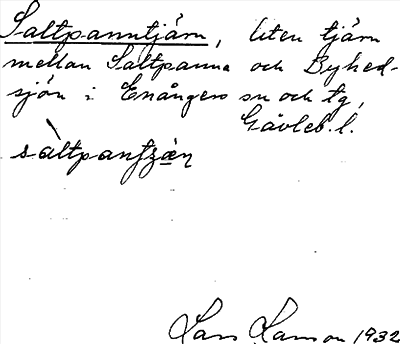 Saltpanntjärn, liten tjärn
mellan Saltpanna och Byhed-
sjön i Enångers sn och tg,
Gävleb. l.
sàltpantʃæ̣n
Lars Larsson 1932